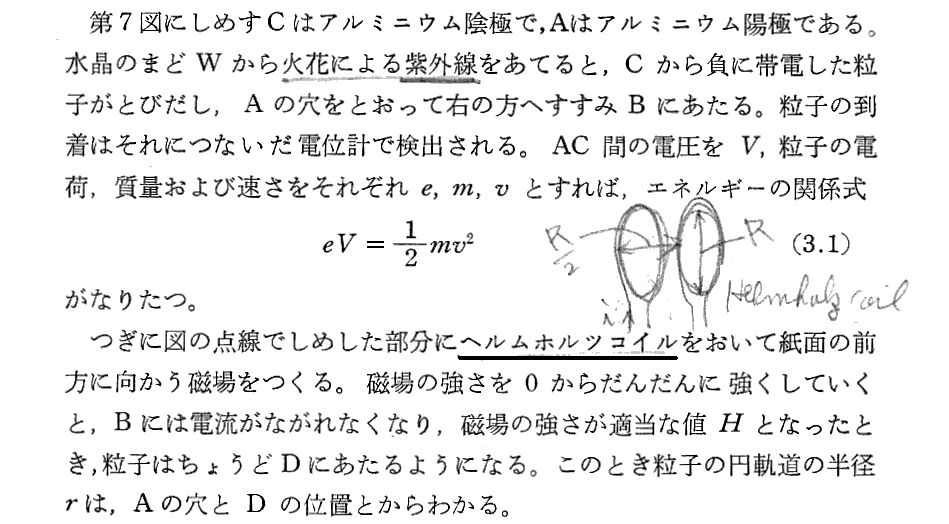 第7図にしめすCはアルミニウム陰極で,Aはアルミニウム陽極である。
水晶のまど W から火花による紫外線をあてると, C から負に帯電した粒
子がとびだし, A の穴をとおって右の方へすすみ B にあたる。粒子の到
着はそれにつないだ電位計で検出される。 AC 間の電圧を V, 粒子の電
荷, 質量および速さをそれぞれ e, m, v とすれば, エネルギーの関係式
eV = 1/2 mv² (3.1)
R/2
R
Helmholz coil
がなりたつ。
つぎに図の点線でしめした部分にヘルムホルツコイルをおいて紙面の前
方に向かう磁場をつくる。 磁場の強さを 0 からだんだんに強くしていく
と, B には電流がながれなくなり, 磁場の強さが適当な値 H となったと
き,粒子はちょうど D にあたるようになる。このとき粒子の円軌道の半径
r は, A の穴と D の位置とからわかる。